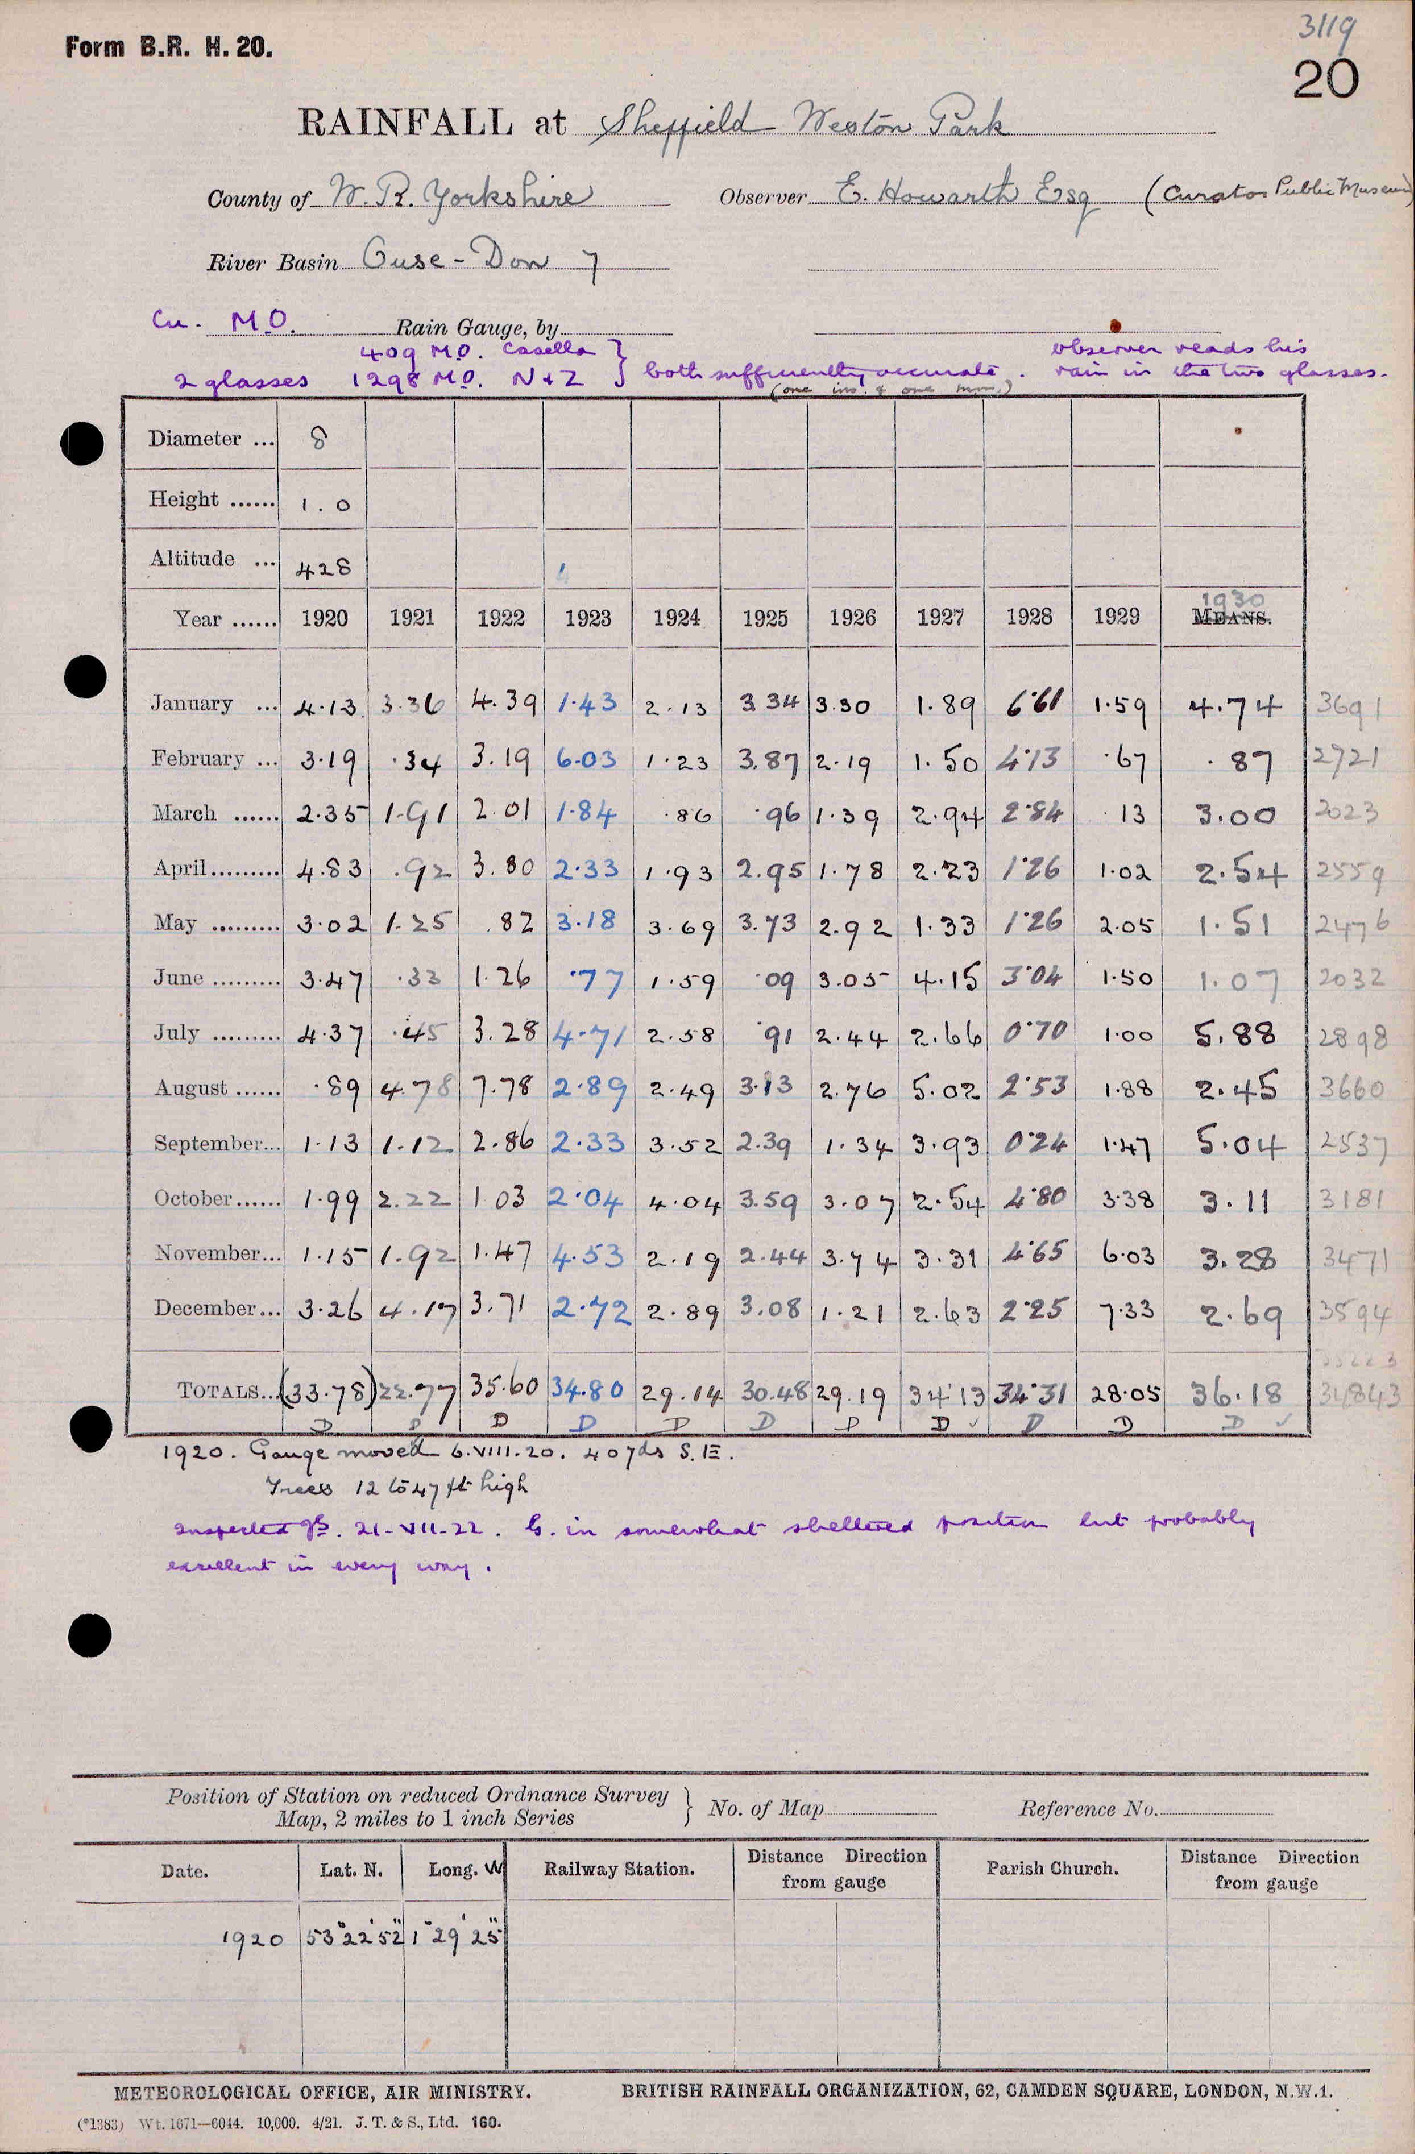 3119
Form B.R. H. 20.
20
RAINFALL at Sheffield Weston Park
County of W. R. Yorkshire Observer E. Howarth Esq (Curator Public Museum)
River Basin Ouse - Don 7
Cu. M.O. Rain Gauge, by
409 M.O. Casella } observer reads his
2 glasses 1298 M.O. N & Z } both sufficiently accurate. rain in the two glasses.
(one ins. & one mm.)
Diameter ... 8
Height ...... 1.0
Altitude ... 428
1930
Year ...... 1920 1921 1922 1923 1924 1925 1926 1927 1928 1929 MEANS.
January ... 4.13 3.36 4.39 1.43 2.13 3.34 3.30 1.89 6.61 1.59 4.74 3691
February ... 3.19 .34 3.19 6.03 1.23 3.87 2.19 1.50 4.13 .67 .87 2721
March ...... 2.35 1.91 2.01 1.84 .86 .96 1.39 2.94 2.84 13 3.00 2023
April ......... 4.83 .92 3.80 2.33 1.93 2.95 1.78 2.23 1.26 1.02 2.54 2559
May ......... 3.02 1.25 .82 3.18 3.69 3.73 2.92 1.33 1.26 2.05 1.51 2476
June ......... 3.47 .33 1.26 .77 1.59 .09 3.05 4.15 3.04 1.50 1.07 2032
July ......... 4.37 .45 3.28 4.71 2.58 .91 2.44 2.66 0.70 1.00 5.88 2898
August ...... .89 4.78 7.78 2.89 2.49 3.13 2.76 5.02 2.53 1.88 2.45 3660
September... 1.13 1.12 2.86 2.33 3.52 2.39 1.34 3.93 0.24 1.47 5.04 2537
October...... 1.99 2.22 1.03 2.04 4.04 3.59 3.07 2.54 4.80 3.38 3.11 3181
November... 1.15 1.92 1.47 4.53 2.19 2.44 3.74 3.31 4.65 6.03 3.28 3471
December... 3.26 4.17 3.71 2.72 2.89 3.08 1.21 2.63 2.25 7.33 2.69 3594
TOTALS... (33.78) 22.77 35.60 34.80 29.14 30.48 29.19 34.13 34.31 28.05 36.18 34843
D D D D D D D D ✓ D D D ✓
1920. Gauge moved 6.VIII.20. 40 yds S.E.
Trees 12 to 47 ft high
Inspected 21-VII-22. G. in somewhat sheltered position but probably
excellent in every way.
Position of Station on reduced Ordnance Survey Map, 2 miles to 1 inch Series } No. of Map Reference No.
Date. Lat. N. Long. W Railway Station. Distance Direction from gauge Parish Church. Distance Direction from gauge
1920 53°22'52" 1°29'25"
METEOROLOGICAL OFFICE, AIR MINISTRY. BRITISH RAINFALL ORGANIZATION, 62, CAMDEN SQUARE, LONDON, N.W.1.
(*1383) Wt. 1671—6044. 10,000. 4/21. J. T. & S., Ltd. 160.